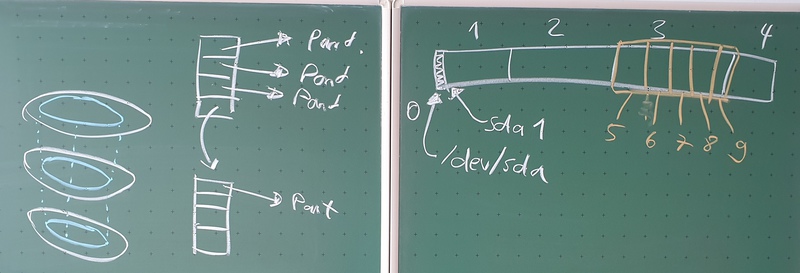 Part.
Part
Part
Part
1 2 3 4
0
sda1
/dev/sda
5 6 7 8 9